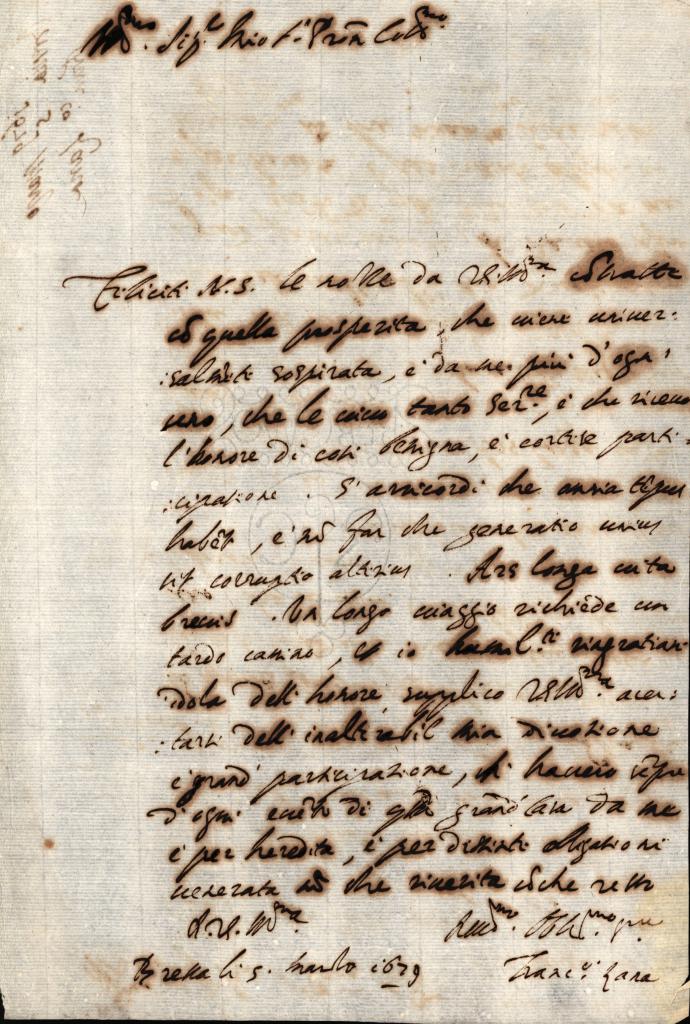 Ill.mo Sig.r Mio S.r Pron Col.mo
Feliciti N.S. le nozze da VS Ill.ma cōtratte
cō quella prosperità, che viene univer-
salmēte sospirata, e da me più d'ogn'
uno, che le vivo tanto Ser.re, e che ricevo
l'honore di così benigna, e cortese parti-
cipatione. S'arricordi che omnia tēpus
habēt, e nō far che generatio unius
sit corruptio alterius. Ars longa vita
brevis. Un longo viaggio richiede un
tardo camino, et io humil.te ringratian-
dola dell'honore, supplico VS Ill.ma accer-
tarsi dell'inalterabil mia divotione
e grand' participatione, ch' haverò sēpre
d'ogni evēto di grand' Casa da me
e per heredità, e per distinte obligationi
venerata nō che riverita cōche resto
D.V.S. Ill.ma
Dev.mo Obl.mo
Brescia li 5. Marzo 1679
Franc.o Zana